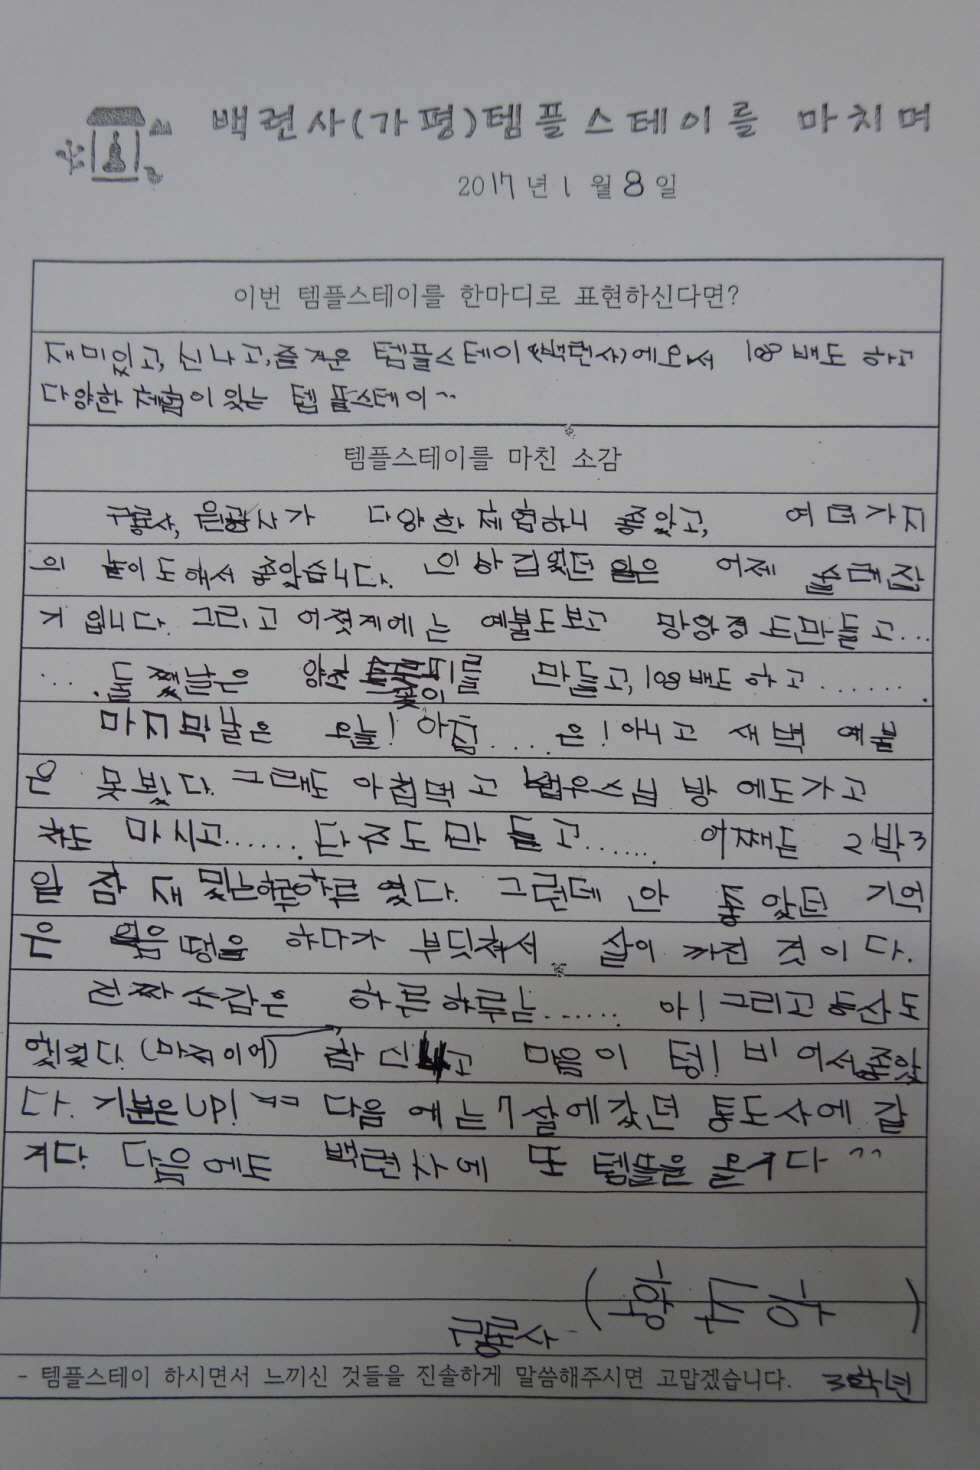 백련사(가평)템플스테이를 마치며
2017년 1월 8일
이번 템플스테이를 한마디로 표현하신다면?
재미있고, 신나고, 즐거운 템플스테이(백련사)에 오서 108배도 하고
다양한 체험이 있는 템플스테이^^
템플스테이를 마친 소감
다양한 체험하니 좋았고, 여러가지
의 놀이도해서 좋았습니다. 인상깊었던 일은 어제
지 입니다. 그리고 어젯께에는 예불도보고 도만들고...
... 둘쨋날은 만들고, 108배도 하고.......
마지막날인 오늘! 아침.... 은! 못고 새벽 예불
은 못봤다. 그래도 아침먹고 방에도가고
차도 마시고....... 단주도 만들고...... 어쨌든 2박3
일 참 재밌는하루하루였다. 그런데 안 좋았던 기억
은 얼음땡을 하다가 부딧쳐서 살이 까진 것이다.
진짜소감은 하루하루는...... 아! 그리고 등산도
했었다.(마지막이어) 참 신나고 몸이 텅! 비어서좋았
다. 기분은UP! 다음에는 7살에갔던 통도사에 갈
거다. 다음에도 백련사에 또 템플을 올거다^^
(황규하)
- 템플스테이 하시면서 느끼신 것들을 진솔하게 말씀해주시면 고맙겠습니다. 3학년